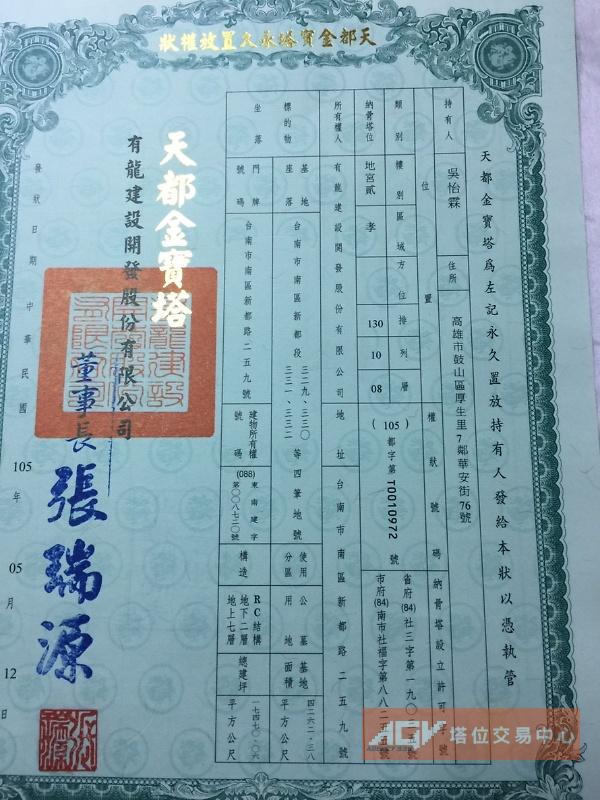 天都金寶塔永久置放權狀
天都金寶塔爲左記永久置放持有人發給本狀以憑執管
持有人
吳怡霖
住所
高雄市鼓山區厚生里7鄰華安街76號
納骨塔位
位置
類別
樓別
區域
方位
排
列
層
權狀號碼
納骨塔設立許可字號
地宮貳
孝
130
10
08
(105)都字第T0010972號
省府(84)社三字第一九〇
市府(84)南市社福字第八八二
所有權人
有龍建設開發股份有限公司
地址
台南市南區新都路二五九號
標的物
坐落
基地座落
台南市南區新都段三二九、三三〇、三三一、三三二等四筆地號
使用分區
公墓用地
基地面積
四二六二．三八平方公尺
門牌號碼
台南市南區新都路二五九號
建物所有權號碼
(088)東南建字第〇〇八七二〇號
構造
RC結構地下二層地上七層
總建坪
一七四七〇．〇六平方公尺
天都金寶塔
有龍建設開發股份有限公司
董事長
張瑞源
發狀日期中華民國105年05月12日
ACV 塔位交易中心